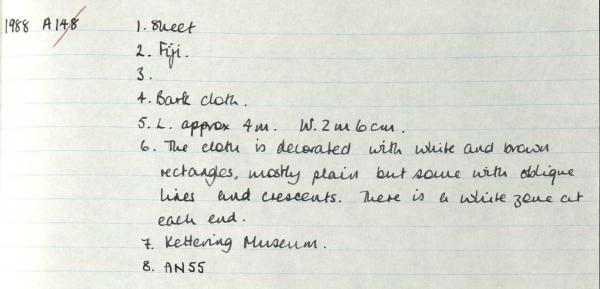 1988 A148 1. Sheet
2. Fiji.
3.
4. Bark cloth.
5. L. approx 4m. W. 2m 6cm.
6. The cloth is decorated with white and brown
rectangles, mostly plain but some with oblique
lines and crescents. There is a white zone at
each end.
7. Kettering Museum.
8. AN55